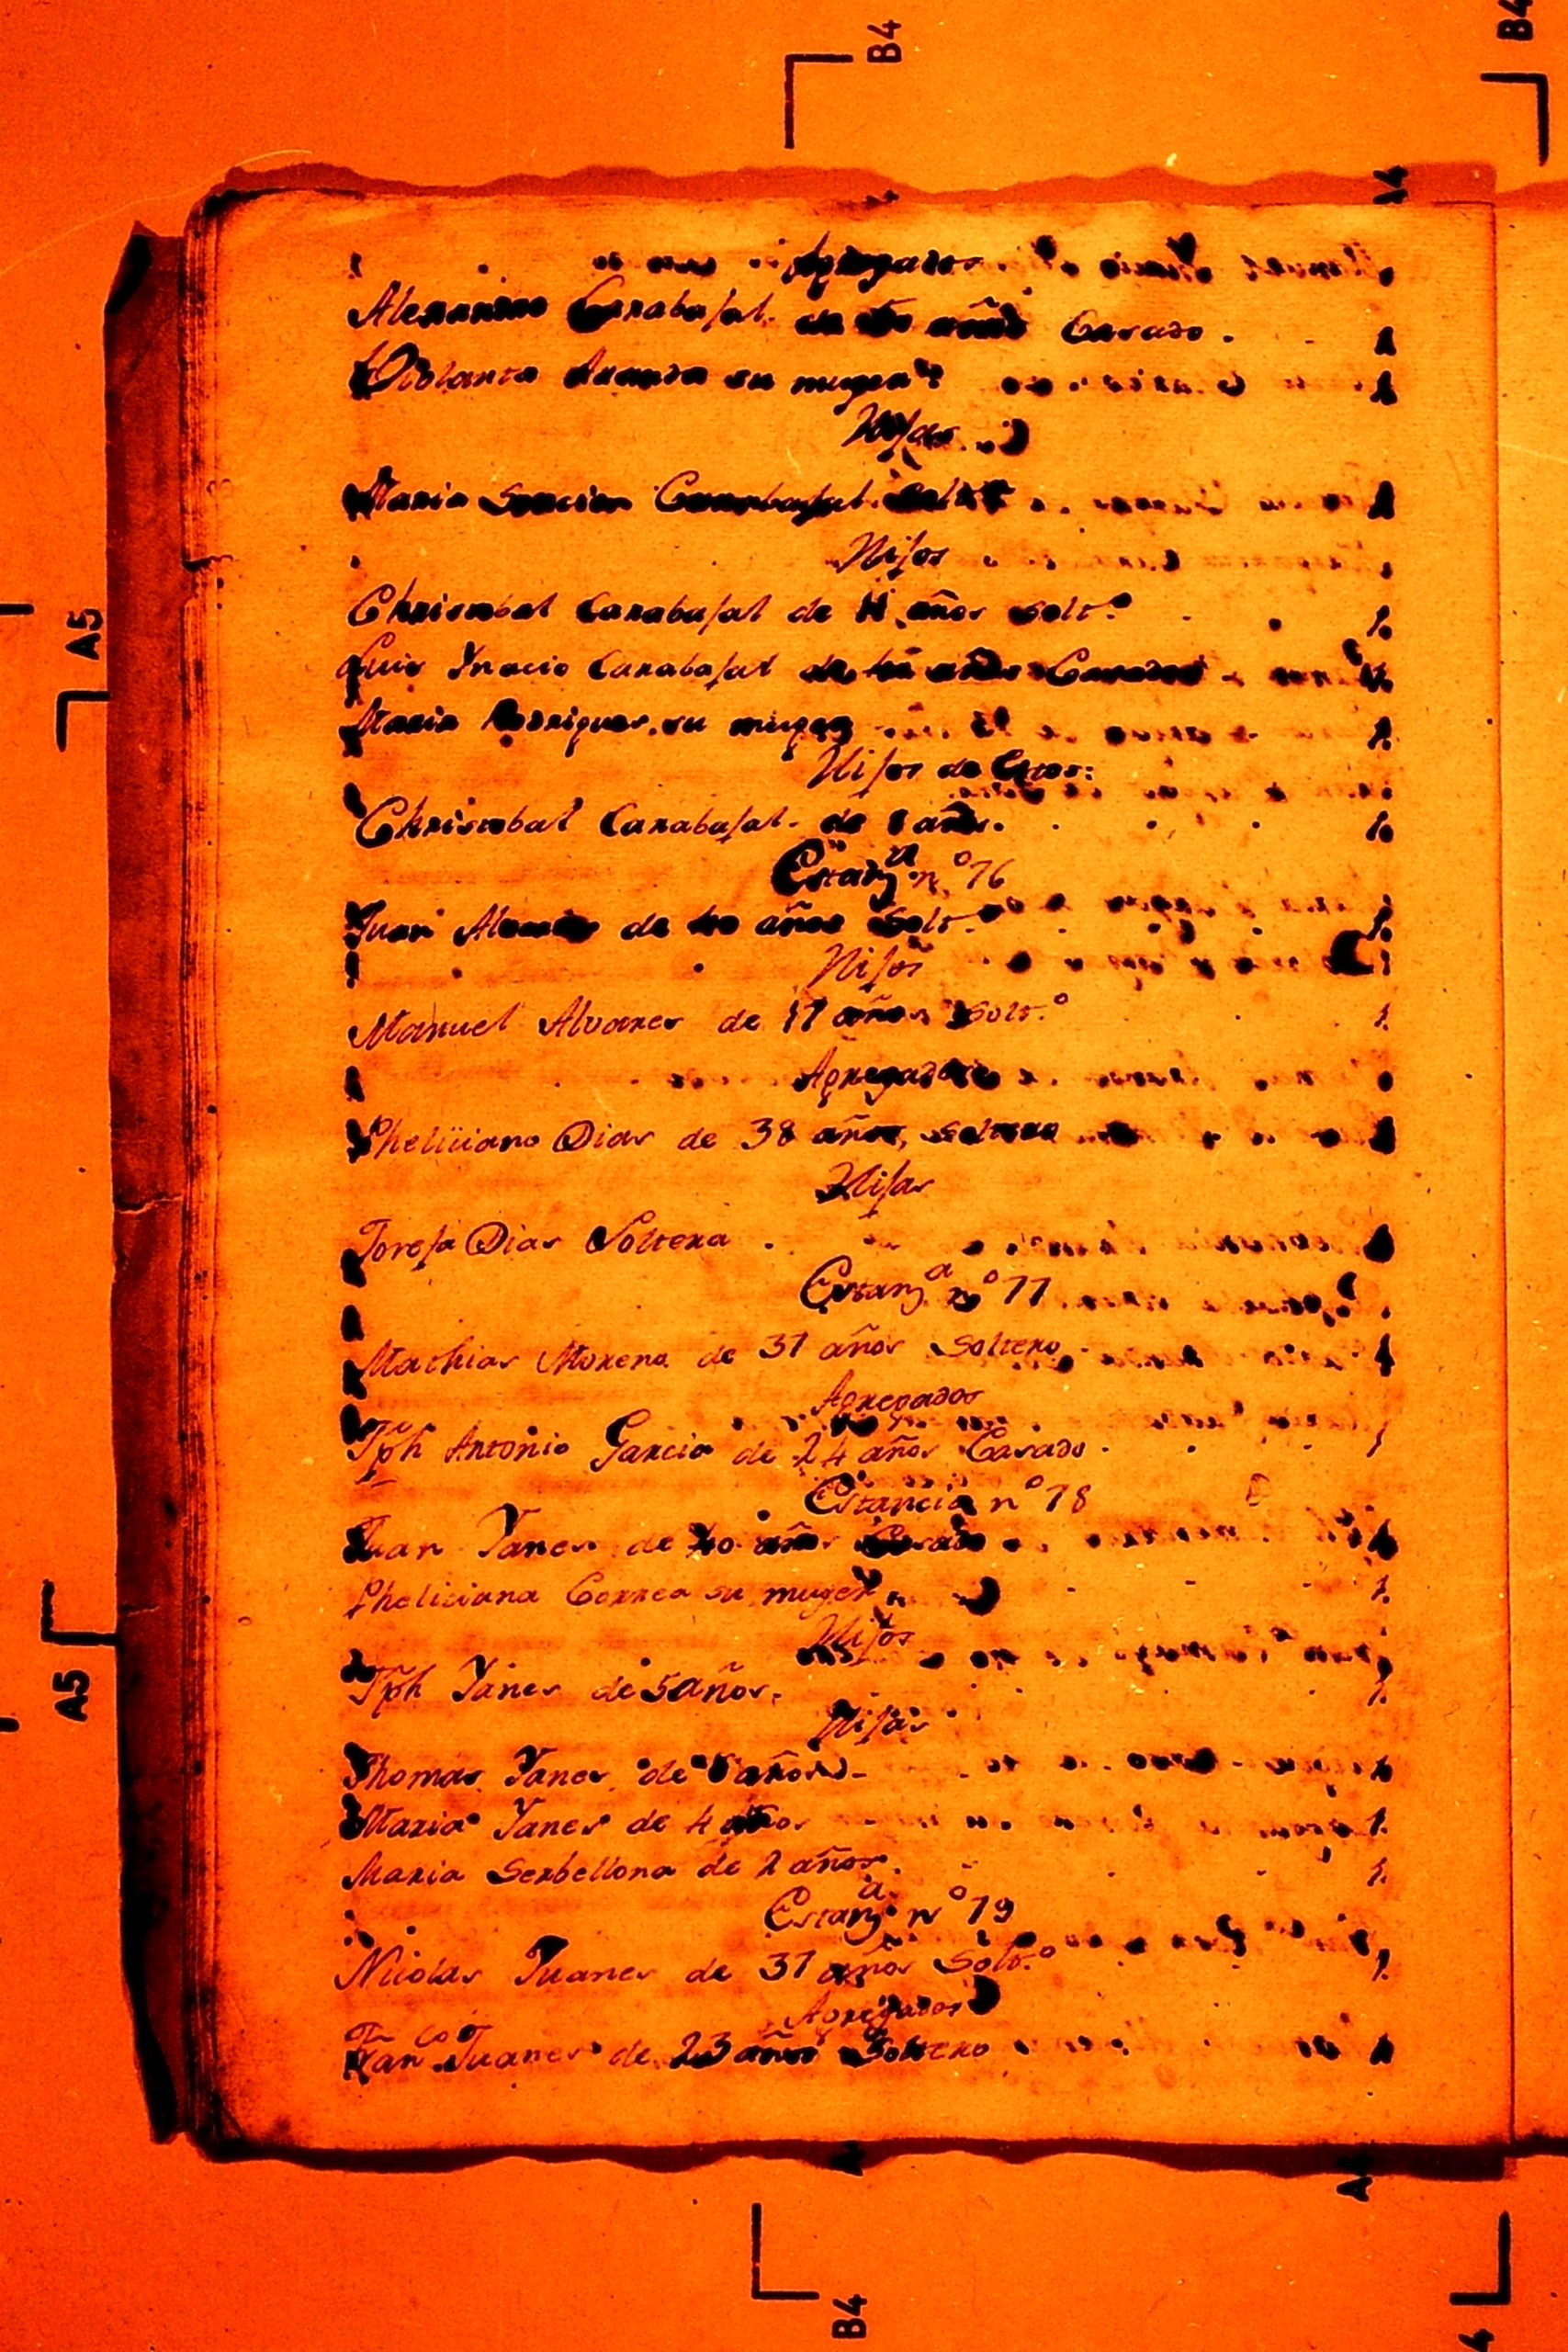 B4
B4
Agregados
Alexandro Carabajal. de años Casado.
Violanta Aranda su muger
Hijas
Maria Carabajal. Solt
Hijos
Christobal Carabajal de 11 años Solt.º 1.
Luis Ynacio Carabajal de años Casado
Maria Rodrigues su muger 1.
Hijos de Estos:
Christobal Carabajal. de 8 años. 1.
Estanz.ª n.º 76
Juan de 40 años Solt.º 1.
Hijos
Manuel Alvares de 17 años Solt.º 1.
Agregados
Pheliciano Dias de 38 años, soltero
Hijas
Toresa Dias Soltera
Estanz.ª nº 77
Mathias Moreno de 37 años Soltero
Agregados
Jph Antonio Garcia de 24 años Casado 1
Estancia nº 78
Juan Yanes de 40 años Casado
Pheliciana Correa su muger 1.
Hijos
Jph Yanes de 5 años. 1.
Hijas
Thomas Yanes de años
Maria Yanes de 4 años 1.
Maria Serbellona de 2 años. 1.
Estanz.ª nº 79
Nicolas Juanes de 37 años Solt.º 1.
Agregados
Fran.co Juanes de 23 años Soltero
A5
A5
B4